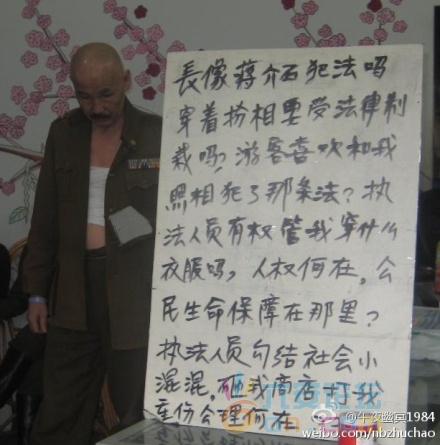 長像蒋介石犯法吗
穿着扮相要受法律制
裁吗?游客喜欢和我
照相犯了那条法?执
法人员有权管我穿什么
衣服吗,人权何在,公
民生命保障在那里?
执法人员勾结社会小
混混,砸我商店打我
公理何在
@午夜幽冥1984
weibo.com/nbzhuchao